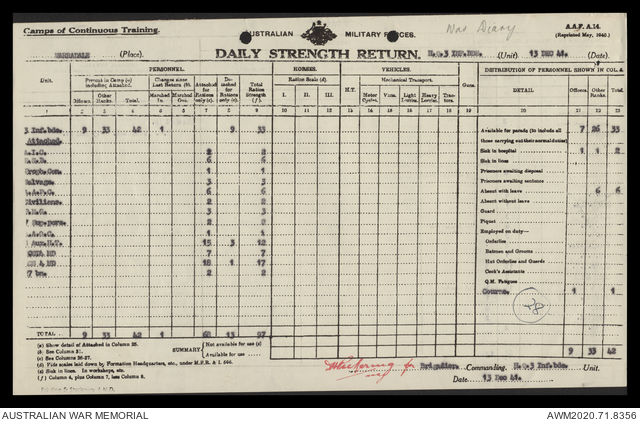 Camps of Continuous Training.
AUSTRALIAN MILITARY FORCES.
War Diary
A.A.F. A.14.
(Reprinted May, 1940.)
(Place).
DAILY STRENGTH RETURN,
(Unit).
13 DEC 41.
(Date).
PERSONNEL.
HORSES.
VEHICLES.
Guns.
DISTRIBUTION OF PERSONNEL SHOWN IN COL 4.
Unit.
Present in Camp (a) including Attached.
Changes since Last Return (b).
Attached for Rations only (c).
Detached for Rations only (c).
Total Ration Strength (f).
Ration Scale (d).
H.T.
Mechanical Transport.
DETAIL
Officers.
Other Ranks.
Total.
Officers.
Other Ranks.
Total.
Marched In.
Marched Out.
I.
II.
III.
Motor Cycles.
Vans.
Light Lorries.
Heavy Lorries.
Tractors.
1 2 3 4 5 6 7 8 9 10 11 12 13 14 15 16 17 18 19 20 21 22 23
3 Inf.bde. 9 33 42 1 9 33
Attached.
2 2
6 6
1 1
Salvage. 3 3
6 6
2 2
3 3
2 2
1 1
15 3 12
7 7
18 1 17
2 2
Available for parade (to include all those carrying out their normal duties) 7 26 33
Sick in hospital 1 1 2
Sick in lines
Prisoners awaiting disposal
Prisoners awaiting sentence
Absent with leave 6 6
Absent without leave
Guard
Piquet
Employed on duty—
Orderlies
Batmen and Grooms
Hut Orderlies and Guards
Cook's Assistants
Q.M. Fatigues
1 1
TOTAL 9 33 42 1 68 13 97
9 33 42
(a) Show detail of Attached in Column 25.
(c) See Columns 26-27.
(d) Vide scales laid down by Formation Headquarters, etc., under M.F.R. & I. 695.
(e) Sick in Lines. In workshops, etc.
(f) Column 4, plus Column 7, less Column 8.
SUMMARY
Not available for use
Available for use
for Brigadier. Commanding. Unit.
Date 13 Dec 41.
AUSTRALIAN WAR MEMORIAL
AWM2020.71.8356